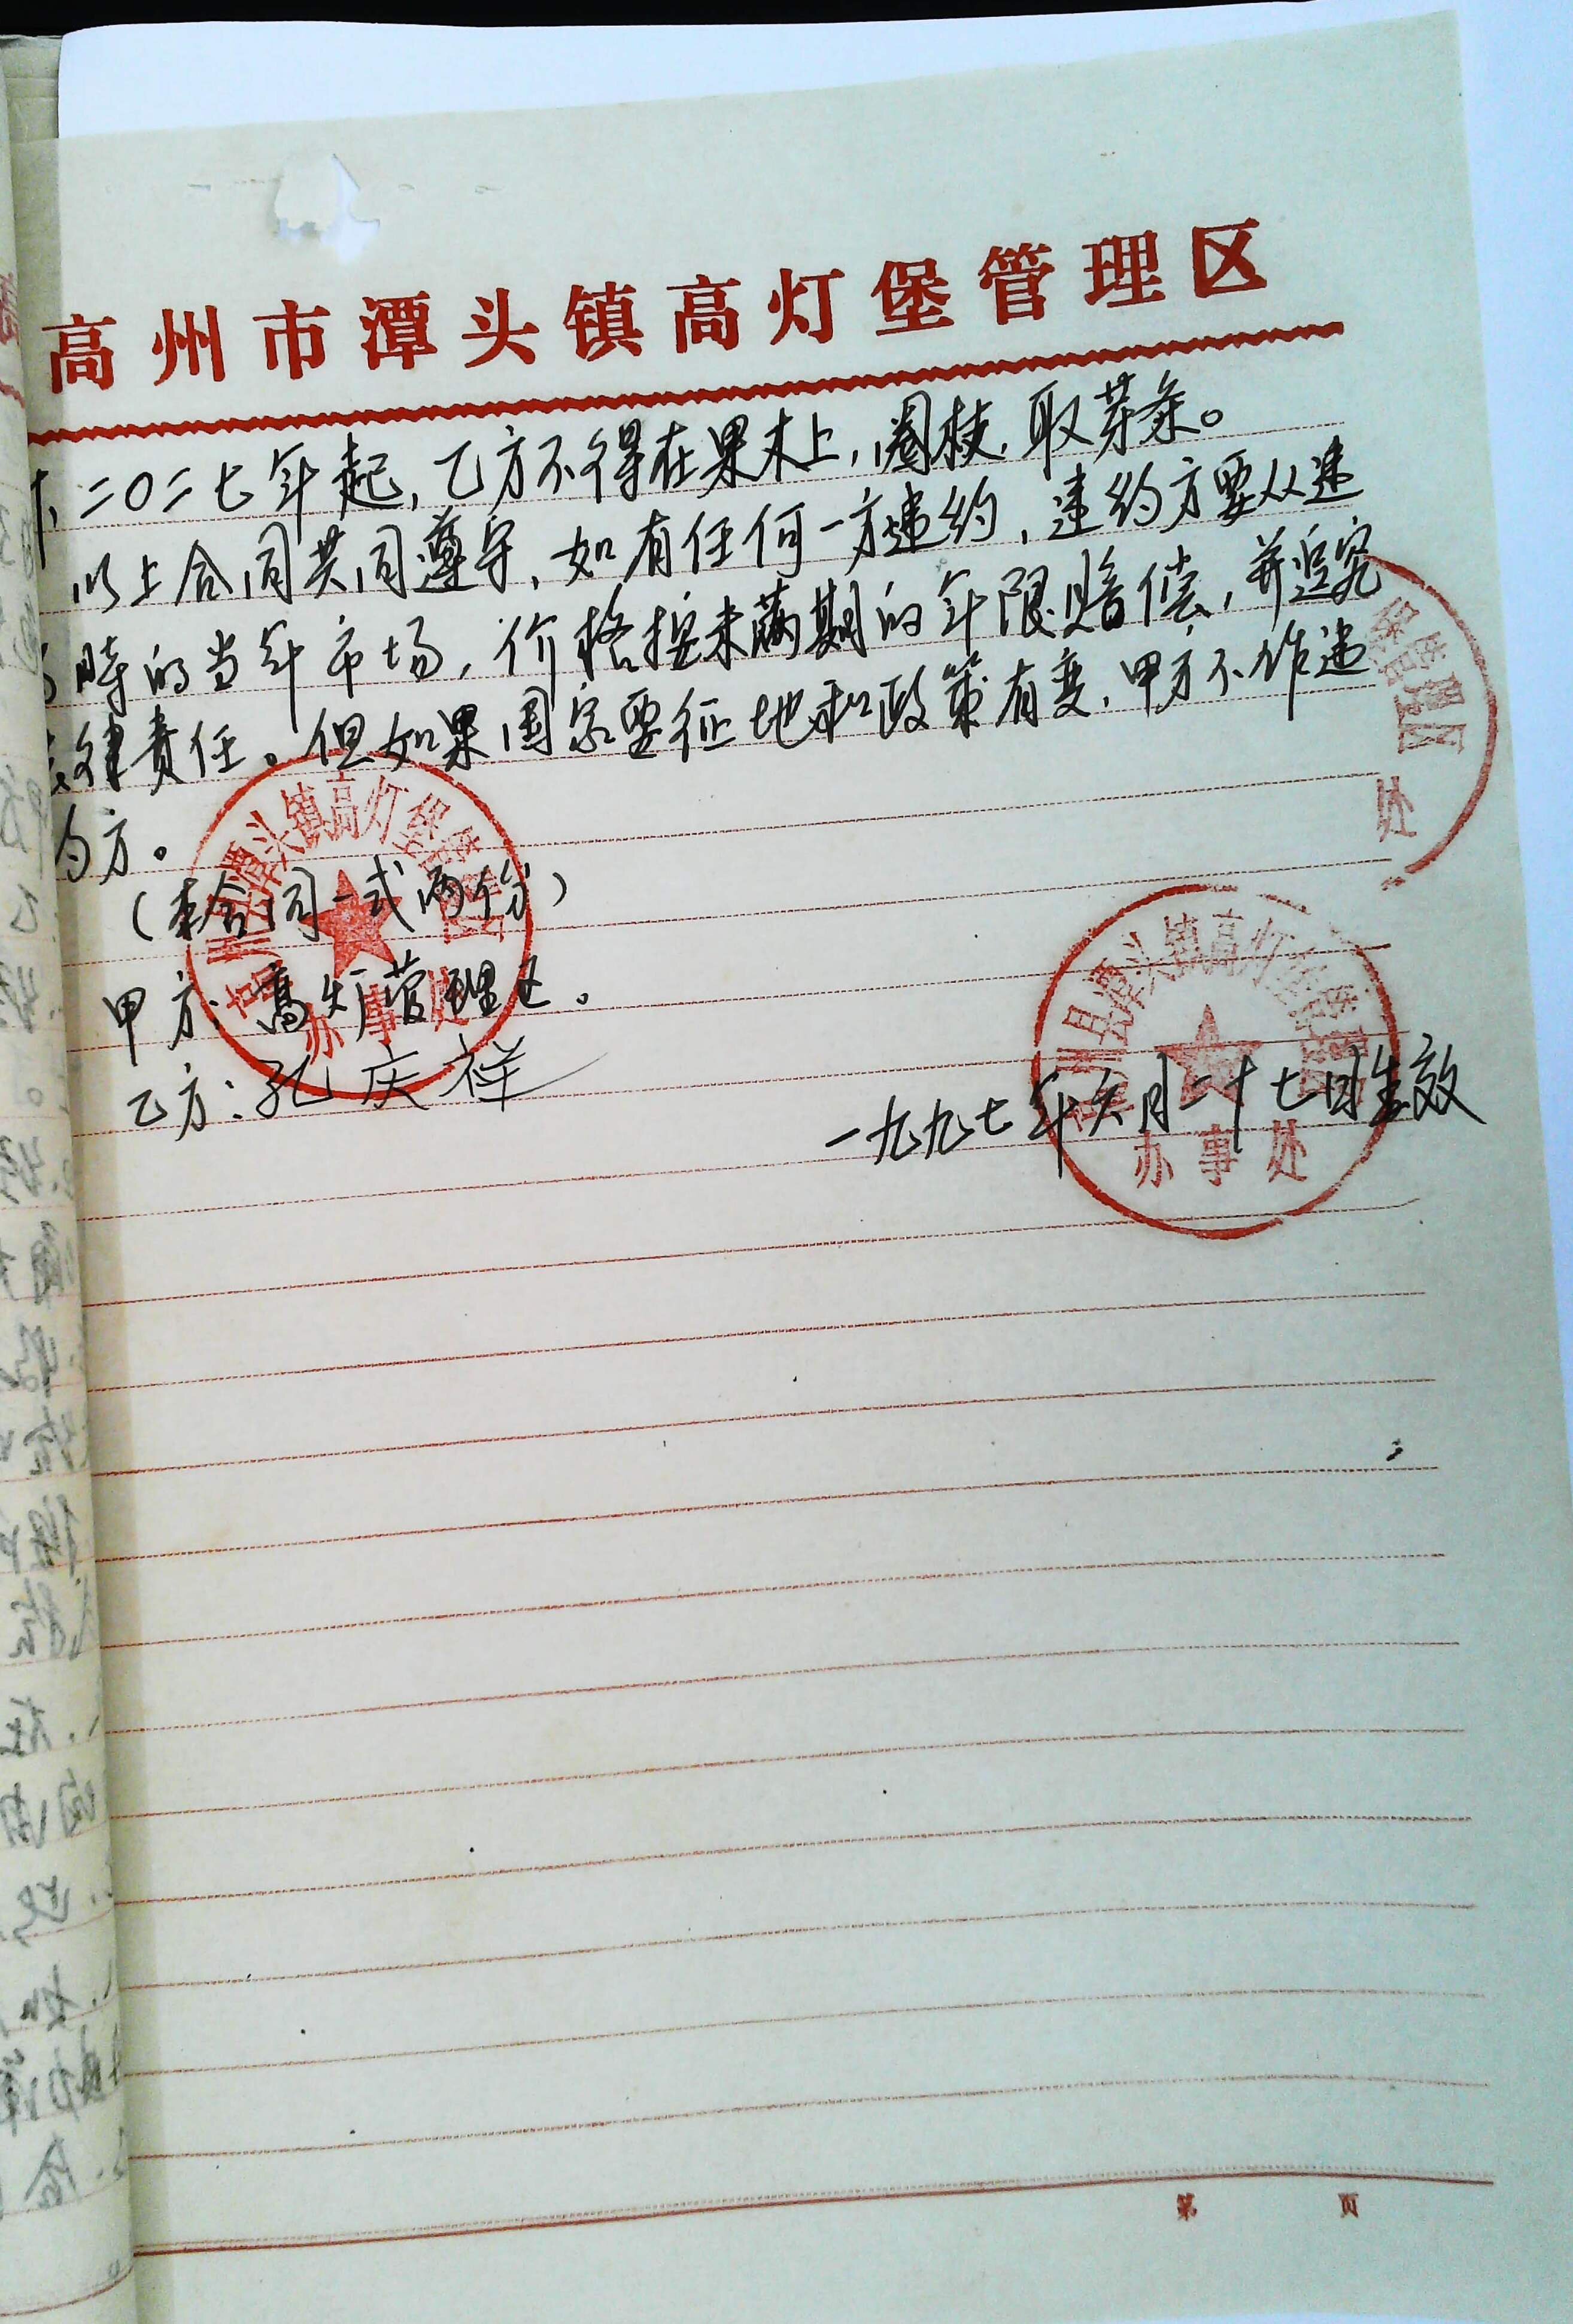 高州市潭头镇高灯堡管理区
十、二〇二七年起，乙方不得在果木上，圈枝，取芽条。
以上合同共同遵守，如有任何一方违约，违约方要从违
约时的当年市场，价格按未满期的年限赔偿，并追究
法律责任。但如果国家要征地和政策有变，甲方不作违
约方。
（本合同一式两份）
甲方：高灯管理区。
乙方：孔庆祥
一九九七年六月二十七日生效
堡管理区
处
州县潭头镇高灯堡管理区
办事处
潭头镇高灯堡管理区
办事处
第 页